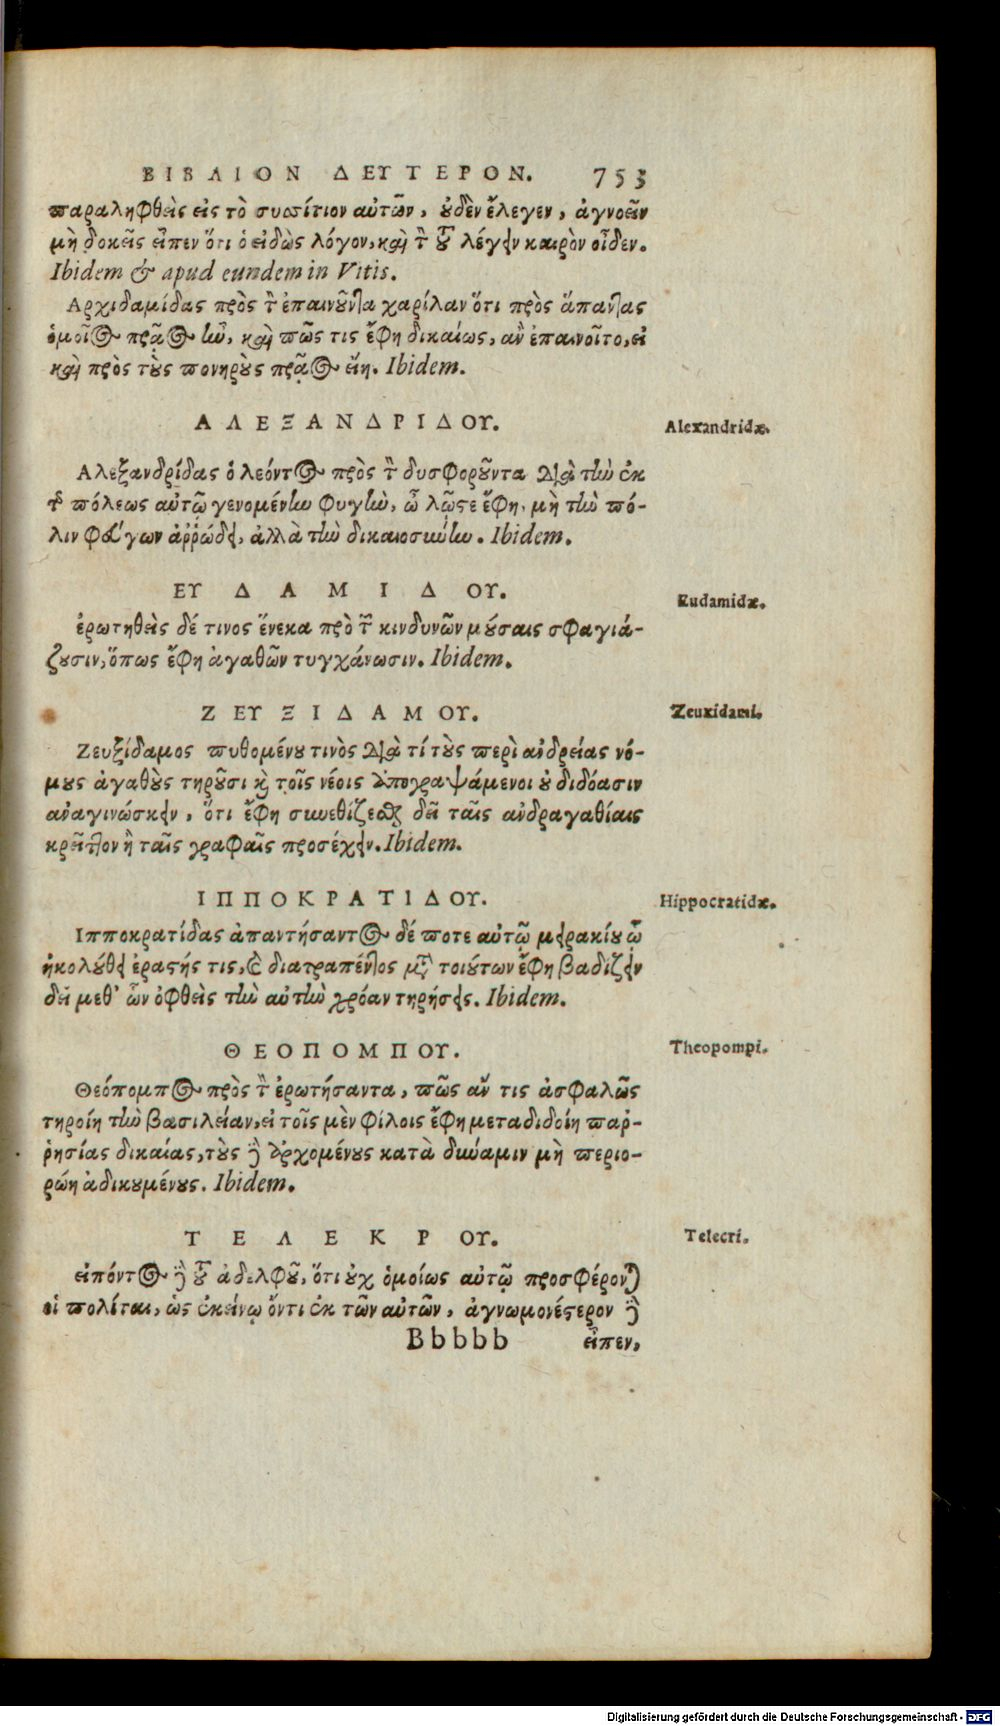 ΒΙΒΛΙΟΝ ΔΕΥΤΕΡΟΝ. 753
παραληφθεὶς εἰς τὸ συσσίτιον αὐτῶν, οὐδὲν ἔλεγεν, ἀγνοεῖν
μὴ δοκεῖς εἶπεν ὅτι ὁ εἰδὼς λόγον, καὶ τὸν τοῦ λέγειν καιρὸν οἶδεν.
Ibidem & apud eundem in Vitis.
Αρχιδαμίδας πρὸς τὸν ἐπαινοῦντα χαρίλαν ὅτι πρὸς ἅπαντας
ὁμοίως πρᾶος ἦν, καὶ πῶς τις ἔφη δικαίως, ἂν ἐπαινοῖτο, εἰ
καὶ πρὸς τοὺς πονηροὺς πρᾷος εἴη. Ibidem.
ΑΛΕΞΑΝΔΡΙΔΟΥ.
Alexandridæ.
Αλεξανδρίδας ὁ λεόντος πρὸς τὸν δυσφοροῦντα διὰ τὴν ἐκ
τῆς πόλεως αὐτῷ γενομένην φυγὴν, ὦ λῷστε ἔφη, μὴ τὴν πό-
λιν φεύγων ἀῤῥώδει, ἀλλὰ τὴν δικαιοσύνην. Ibidem.
ΕΥΔΑΜΙΔΟΥ.
Eudamidæ.
ἐρωτηθεὶς δέ τινος ἕνεκα πρὸ τῶν κινδυνῶν μούσαις σφαγιά-
ζουσιν, ὅπως ἔφη ἀγαθῶν τυγχάνωσιν. Ibidem.
ΖΕΥΞΙΔΑΜΟΥ.
Zeuxidami.
Ζευξίδαμος πυθομένου τινὸς διὰ τί τοὺς περὶ ἀνδρείας νό-
μους ἀγαθοὺς τηροῦσι καὶ τοῖς νέοις ἀπογραψάμενοι οὐ διδόασιν
ἀναγινώσκειν, ὅτι ἔφη συνεθίζεσθαι δεῖ ταῖς ἀνδραγαθίαις
κρεῖττον ἢ ταῖς γραφαῖς προσέχειν. Ibidem.
ΙΠΠΟΚΡΑΤΙΔΟΥ.
Hippocratidæ.
Ιπποκρατίδας ἀπαντήσαντος δέ ποτε αὐτῷ μειρακίου ᾧ
ἠκολούθει ἐραστής τις, καὶ διατραπέντος μετὰ τοιούτων ἔφη βαδίζειν
δεῖ μεθ' ὧν ὀφθεὶς τὴν αὐτὴν χρόαν τηρήσεις. Ibidem.
ΘΕΟΠΟΜΠΟΥ.
Theopompi.
Θεόπομπος πρὸς τὸν ἐρωτήσαντα, πῶς ἄν τις ἀσφαλῶς
τηροίη τὴν βασιλείαν, εἰ τοῖς μὲν φίλοις ἔφη μεταδιδοίη παῤ-
ῥησίας δικαίας, τοὺς δὲ ἀρχομένους κατὰ δύναμιν μὴ περιο-
ρώη ἀδικουμένους. Ibidem.
ΤΕΛΕΚΡΟΥ.
Telecri.
εἰπόντος δὲ τοῦ ἀδελφοῦ, ὅτι οὐχ ὁμοίως αὐτῷ προσφέρονται
οἱ πολίται, ὡς ἐκείνῳ ὄντι ἐκ τῶν αὐτῶν, ἀγνωμονέστερον δὲ
Bbbbb εἶπεν,
Digitalisierung gefördert durch die Deutsche Forschungsgemeinschaft - DFG